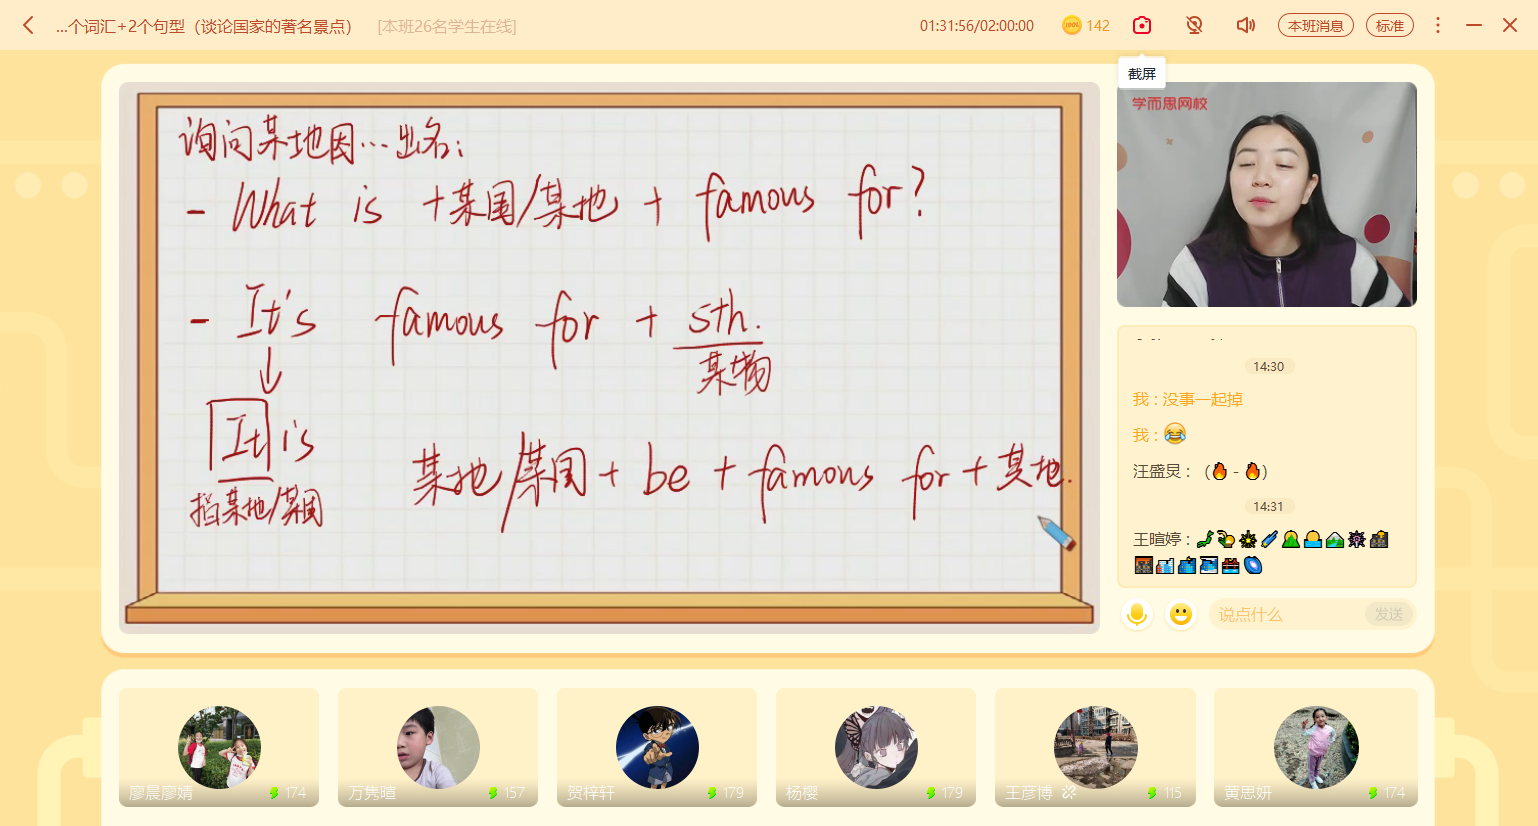 ...个词汇+2个句型（谈论国家的著名景点）
[本班26名学生在线]
01:31:56/02:00:00
142
本班消息
标准
截屏
学而思网校
询问某地因…出名：
- What is +某国/某地 + famous for?
- It's famous for + sth.
某物
It is
指某地/某国
某地/某国 + be + famous for + 某地.
14:30
我 : 没事一起掉
我 : 😂
汪盛炅 : （🔥 - 🔥）
14:31
王暄婷 :
说点什么
发送
廖晨廖婧 174
万隽暄 157
贺梓轩 179
杨樱 179
王彦博 115
黄思妍 174